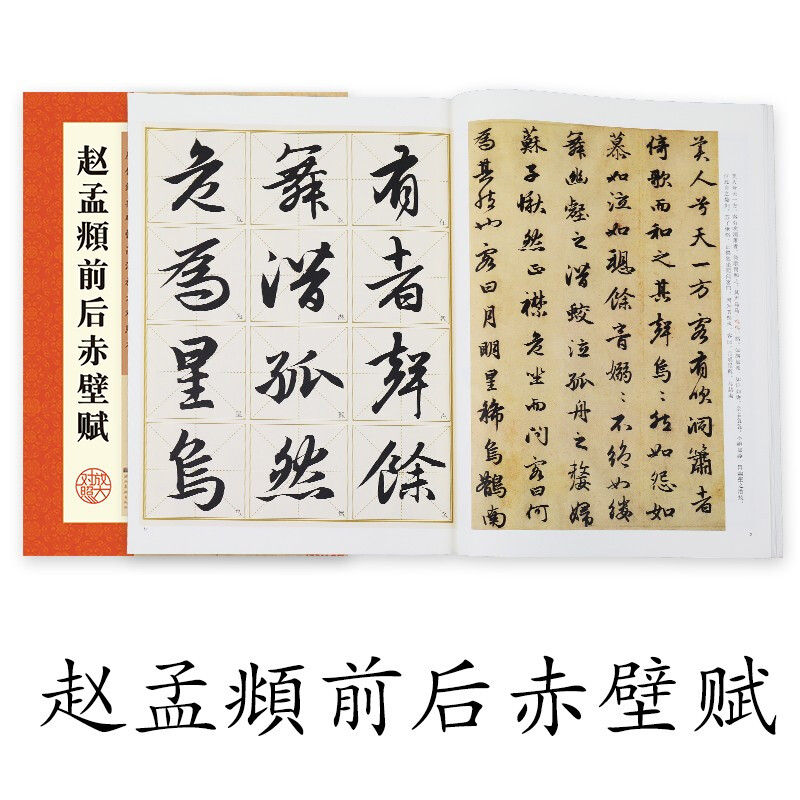 赵孟頫前后赤壁赋
放大对照
有者聲餘
舞潛孤然
危為星烏
美人兮天一方客有吹洞簫者
倚歌而和之其聲烏〻然如怨如
慕如泣如愬餘音嫋〻不絕如縷
舞幽壑之潛蛟泣孤舟之嫠婦
蘇子愀然正襟危坐而問客曰何
為其然也客曰月明星稀烏鵲南
赵孟頫前后赤壁赋